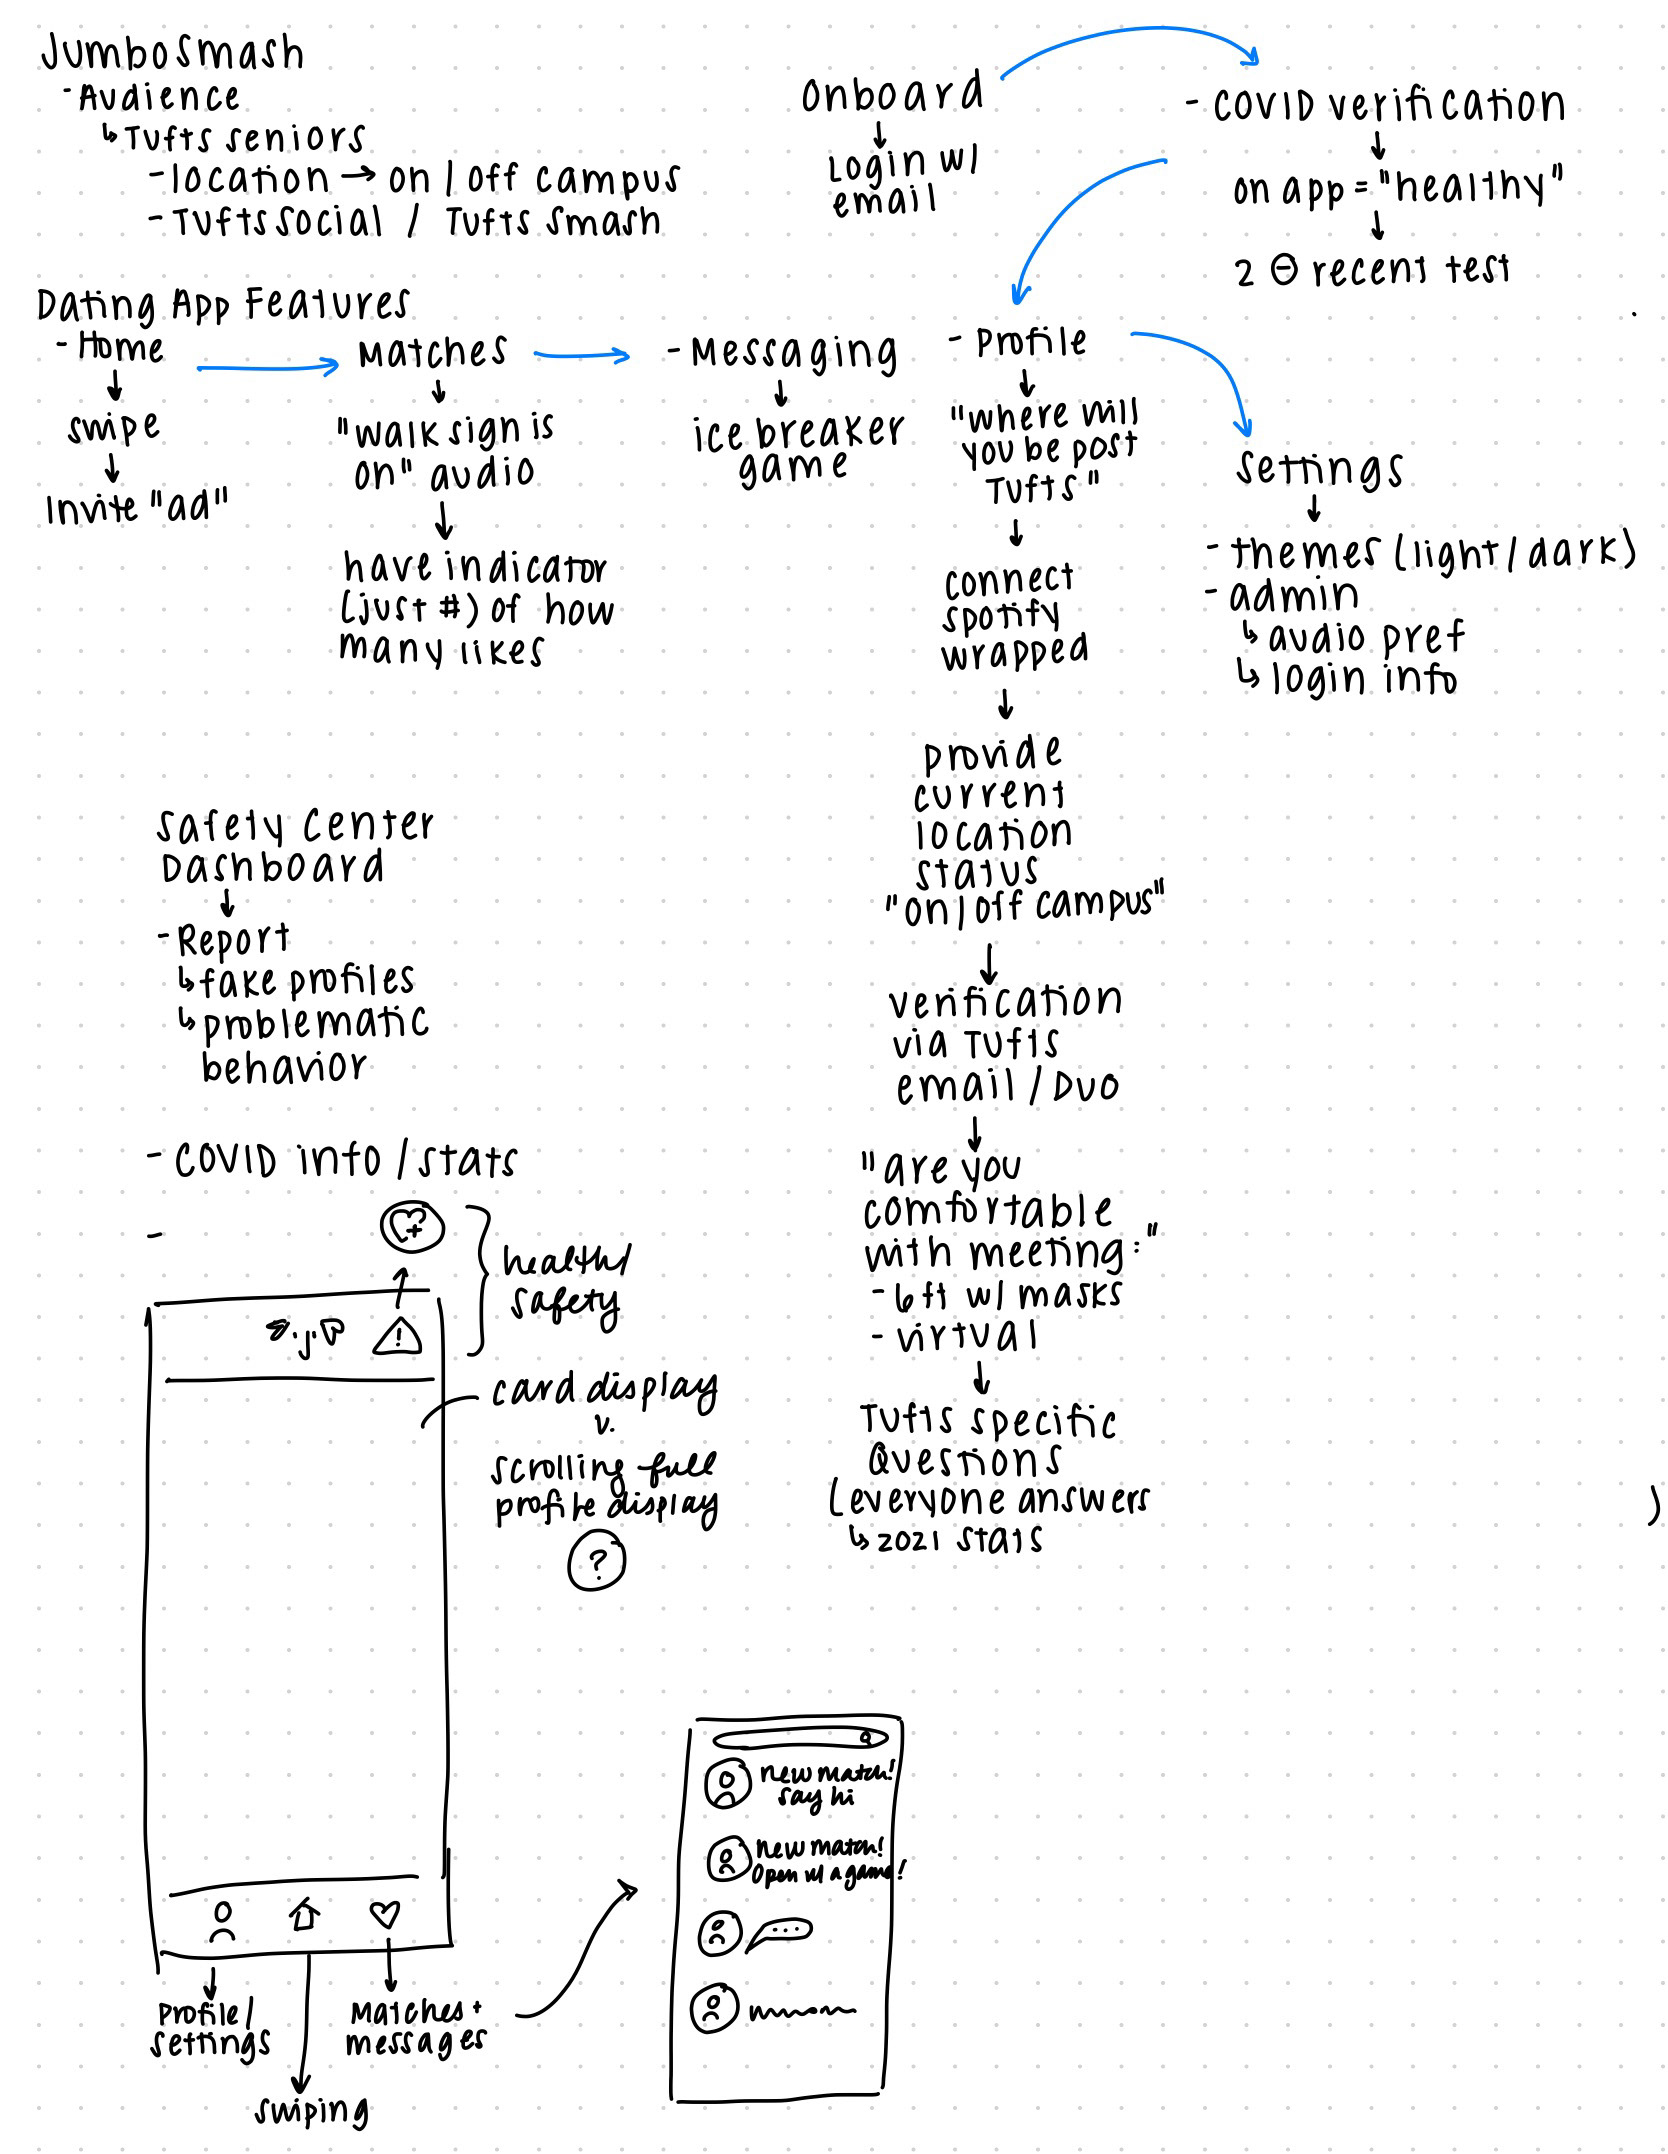 JumboSmash
- Audience
↳ Tufts seniors
- location → on / off campus
- Tufts Social / Tufts Smash
Onboard
↓
Login w/
email
- COVID verification
↓
on app = "healthy"
↓
2 ⊖ recent test
Dating App Features
- Home
↓
swipe
↓
Invite "ad"
Matches
↓
"walk sign is
on" audio
↓
have indicator
(just #) of how
many likes
- Messaging
↓
ice breaker
game
- Profile
↓
"where will
you be post
Tufts"
↓
connect
spotify
wrapped
↓
provide
current
location
status
"on / off campus"
↓
verification
via Tufts
email / Duo
↓
"are you
comfortable
with meeting:"
- 6ft w/ masks
- virtual
↓
Tufts specific
Questions
(everyone answers
↳ 2021 stats
)
Settings
↓
- themes (light / dark)
- admin
↳ audio pref
↳ login info
Safety Center
Dashboard
↓
- Report
↳ fake profiles
↳ problematic
behavior
- COVID info / stats
-
health/
safety
J
!
card display
v.
scrolling full
profile display
?
Profile /
settings
swiping
Matches +
messages
new match!
say hi
new match!
Open w/ a game!
...